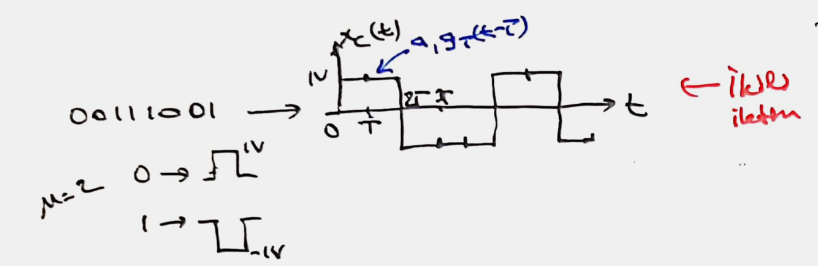 x_c(t)
a_1 g_T(t-T)
1V
00111001 → 0 T 2T t ← ikili
iletim
0 → 1V
M=2
1 → -1V